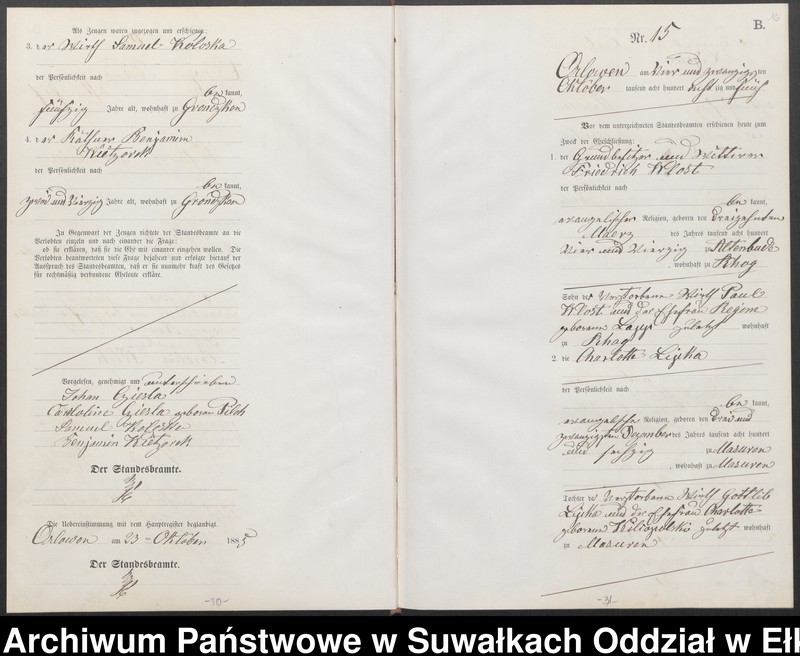 Als Zeugen waren zugezogen und erschienen:
3. der Wirth Samuel Koloska
der Persönlichkeit nach
be kannt,
fünfzig Jahre alt, wohnhaft zu Grondzken
4. der Käthner Benjamin
Kietzorek
der Persönlichkeit nach
be kannt,
zwei und vierzig Jahre alt, wohnhaft zu Grondzken
In Gegenwart der Zeugen richtete der Standesbeamte an die
Verlobten einzeln und nach einander die Frage:
ob sie erklären, daß sie die Ehe mit einander eingehen wollen. Die
Verlobten beantworteten diese Frage bejahend und erfolgte hierauf der
Ausspruch des Standesbeamten, daß er sie nunmehr kraft des Gesetzes
für rechtmäßig verbundene Eheleute erkläre.
Vorgelesen, genehmigt und unterschrieben
Johan Gziesla
Caroline Gziesla geborene Piloh
Samuel Koloska
Benjamin Kietzorek
Der Standesbeamte.
Die Uebereinstimmung mit dem Hauptregister beglaubigt.
Orlowen am 23 ten Oktober 1885
Der Standesbeamte.
-30-
B.
Nr. 15
Orlowen am vier und zwanzigsten
Oktober tausend acht hundert achtzig und fünf
Vor dem unterzeichneten Standesbeamten erschienen heute zum
Zweck der Eheschließung:
1. der Grundbesitzer und Wittwer
Friedrich Klost
der Persönlichkeit nach
be kannt,
evangelischer Religion, geboren den dreizehnten
Maerz des Jahres tausend acht hundert
vier und vierzig zu Altenbude
, wohnhaft zu Rhog
Sohn des verstorbenen Wirth Paul
Klost und der Ehefrau Regine
geborene zuletzt wohnhaft
zu Rhog
2. die Charlotte Lipka
der Persönlichkeit nach
be kannt,
evangelische Religion, geboren den drei und
zwanzigsten Dezember des Jahres tausend acht hundert
und sechzig zu Masuren
, wohnhaft zu Masuren
Tochter des verstorbenen Wirth Gottlieb
Lipka und der Ehefrau Charlotte
geborene zuletzt wohnhaft
zu Masuren
-31-
Archiwum Państwowe w Suwałkach Oddział w Eł